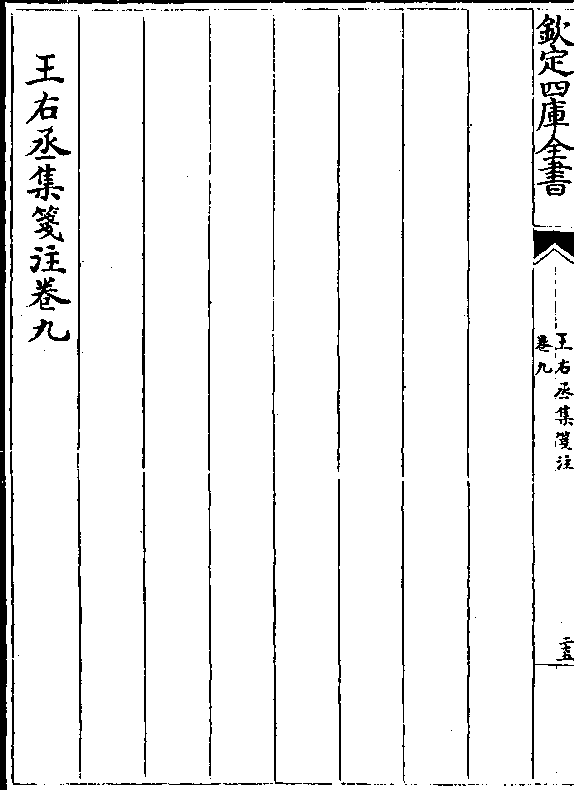 欽定四庫全書
王右丞集箋注
卷九
二五
王右丞集箋注卷九